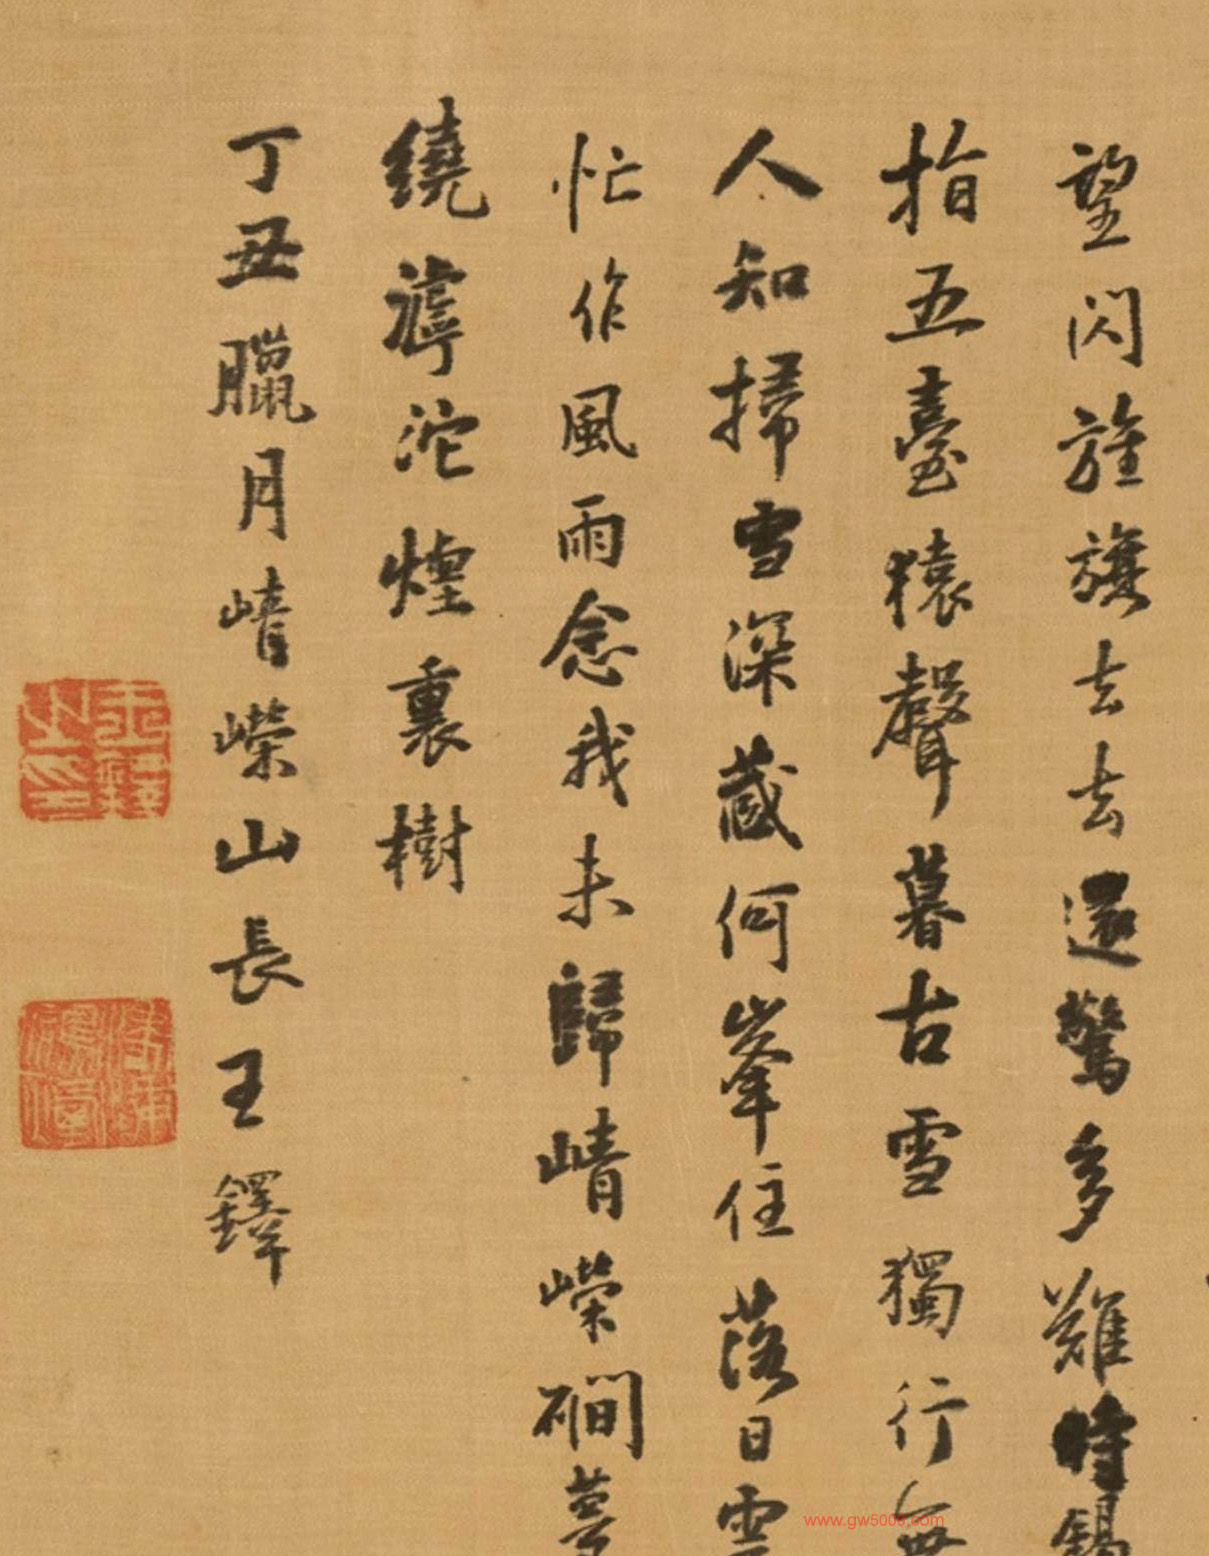 望閃旌旗去去還驚多難時錫
指五臺猿聲暮古雪獨行無
人知掃雪深藏何峯住落日雲
忙作風雨念我未歸崝嶸磵
繞滹沱煌裏樹
丁丑臘月崝嶸山長王鐸
王鐸之印
www.gw5000.com